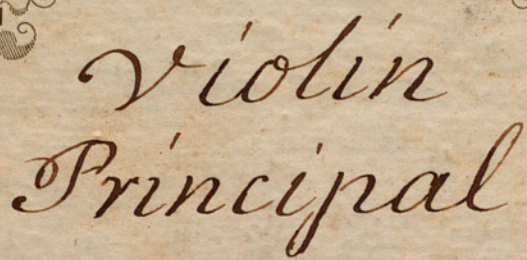 Violin
Principal